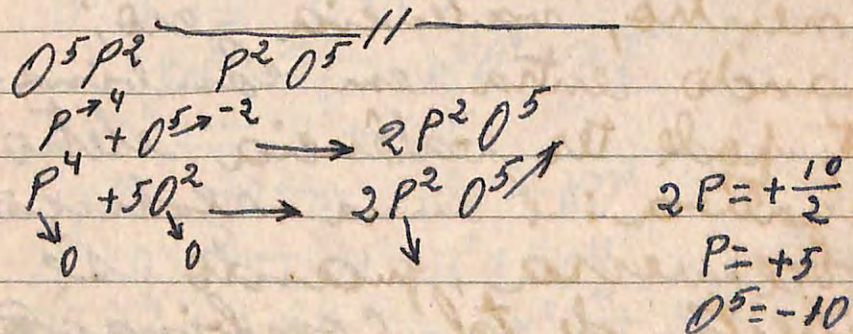 O⁵P² P² O⁵ //
P→⁴ + O⁵→⁻² → 2P² O⁵
P⁴ + 5O² → 2P² O⁵
0 0
2P = + 10/2
P = +5
O⁵ = -10